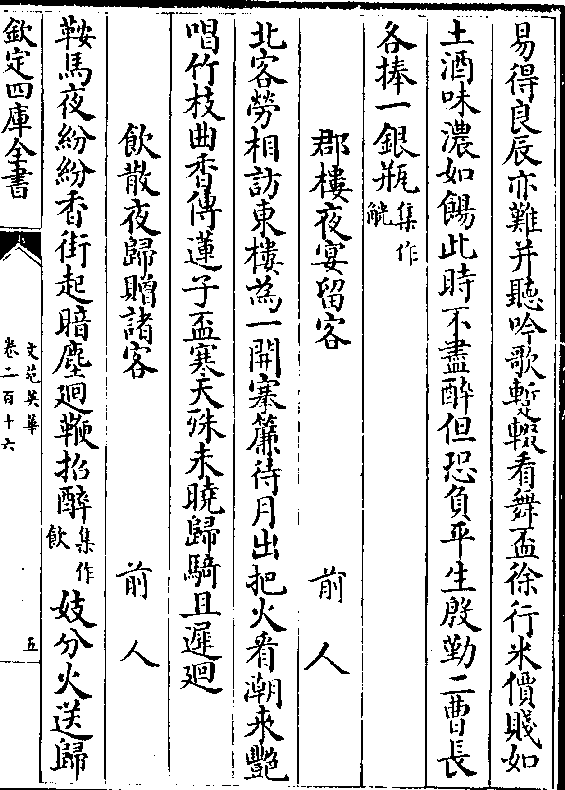 易得良辰亦難并聽吟歌蹔輟看舞盃徐行米價賤如
土酒味濃如餳此時不盡醉但恐負平生殷勤二曹長
各捧一銀瓶集作觥
郡樓夜宴留客 前人
北客勞相訪東樓為一開褰簾待月出把火看潮來艷
唱竹枝曲香傳蓮子盃寒天殊未曉歸騎且遲迴
飲散夜歸贈諸客 前人
鞍馬夜紛紛香街起暗塵迴鞭招醉集作飲妓分火送歸
欽定四庫全書
文苑英華
卷二百十六
五